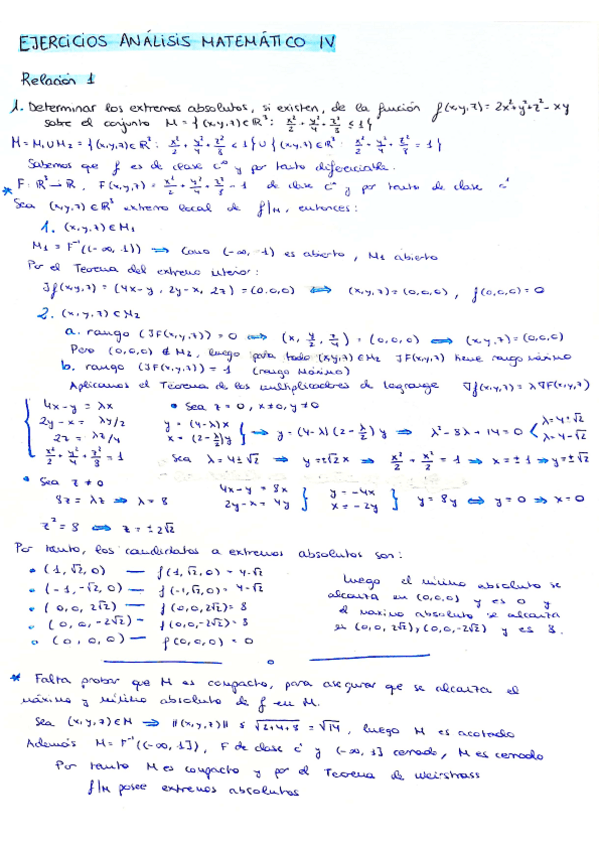 EJERCICIOS ANÁLISIS MATEMÁTICO IV
Relación 1
1. Determinar los extremos absolutos, si existen, de la función f(x,y,z) = 2x²+y²+z² - xy
sobre el conjunto M = { (x,y,z) ∈ ℝ³ : x²/2 + y²/4 + z²/8 ≤ 1 }
M = M₁ ∪ M₂ = { (x,y,z) ∈ ℝ³ : x²/2 + y²/4 + z²/8 < 1 } ∪ { (x,y,z) ∈ ℝ³ : x²/2 + y²/4 + z²/8 = 1 }
Sabemos que f es de clase C^∞ y por tanto diferenciable.
* F: ℝ³ → ℝ, F(x,y,z) = x²/2 + y²/4 + z²/8 - 1 de clase C^∞ y por tanto de clase C¹
Sea (x,y,z) ∈ ℝ³ extremo local de f|M, entonces:
1. (x,y,z) ∈ M₁
M₁ = F⁻¹((-∞, 1)) ⟹ Como (-∞, 1) es abierto, M₁ abierto
Por el Teorema del extremo interior:
Jf(x,y,z) = (4x-y, 2y-x, 2z) = (0,0,0) ⟺ (x,y,z) = (0,0,0), f(0,0,0) = 0
2. (x,y,z) ∈ M₂
a. rango (JF(x,y,z)) = 0 ⟺ (x, y/2, z/4) = (0,0,0) ⟺ (x,y,z) = (0,0,0)
Pero (0,0,0) ∉ M₂, luego para todo (x,y,z) ∈ M₂ JF(x,y,z) tiene rango máximo
b. rango (JF(x,y,z)) = 1 (rango máximo)
Aplicamos el Teorema de los multiplicadores de lagrange ∇f(x,y,z) = λ∇F(x,y,z)
4x-y = λx • Sea z = 0, x≠0, y≠0
2y-x = λy/2 y = (4-λ)x } ⟹ y = (4-λ)(2-λ/2)y ⟹ λ² - 8λ + 14 = 0 < λ = 4+√2
2z = λz/4 x = (2-λ/2)y λ = 4-√2
x²/2 + y²/4 + z²/8 = 1 Sea λ = 4±√2 ⟹ y = ±√2 x ⟹ x²/2 + x²/2 = 1 ⟹ x = ±1 ⟹ y = ±√2
• Sea z ≠ 0 4x-y = 8x } y = -4x } y = 8y ⟺ y = 0 ⟹ x = 0
8z = λz ⟹ λ = 8 2y-x = 4y x = -2y
z² = 8 ⟺ z = ±2√2
Por tanto, los candidatos a extremos absolutos son:
• (1, √2, 0) — f(1, √2, 0) = 4-√2
• (-1, -√2, 0) — f(-1, √2, 0) = 4-√2
• (0, 0, 2√2) — f(0, 0, 2√2) = 8
• (0, 0, -2√2) — f(0, 0, -2√2) = 8
• (0, 0, 0) — f(0,0,0) = 0
Luego el mínimo absoluto se
alcanza en (0,0,0) y es 0 y
el máximo absoluto se alcanza
en (0,0, 2√2), (0,0,-2√2) y es 8.
* Falta probar que M es compacto, para asegurar que se alcanza el
máximo y mínimo absoluto de f en M.
Sea (x,y,z) ∈ M ⟹ ||(x,y,z)|| ≤ √2+4+8 = √14, luego M es acotado
Además M = F⁻¹((-∞, 1]), F de clase C¹ y (-∞, 1] cerrado, M es cerrado
Por tanto M es compacto y por el Teorema de Weirstrass
f|M posee extremos absolutos